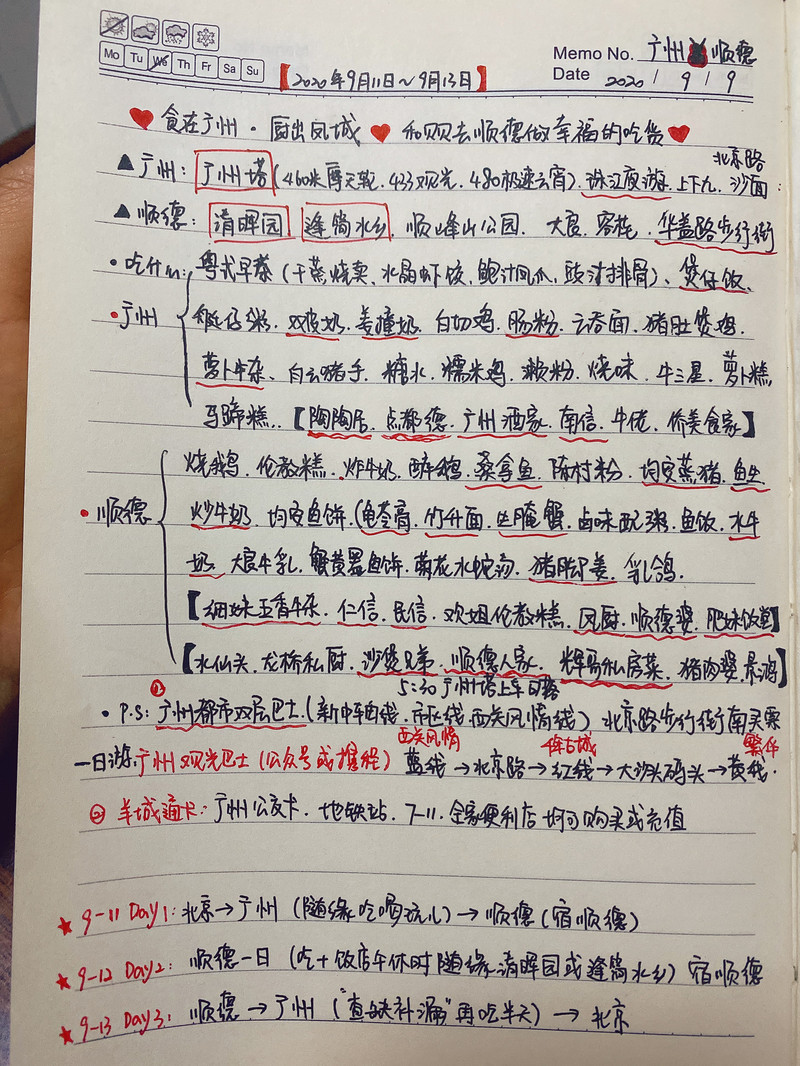 Mo Tu We Th Fr Sa Su
Memo No. 广州 顺德
Date 2020 / 9 / 9
【2020年9月11日~9月13日】
食在广州·厨出凤城 和贝贝去顺德做幸福的吃货
北京路
▲广州：广州塔（460米摩天轮、433观光、480极速云霄）、珠江夜游、上下九、沙面
▲顺德：清晖园 逢简水乡、顺峰山公园、大良、客栈、华盖路步行街
·吃什么：粤式早茶（干蒸烧卖、水晶虾饺、鲍汁凤爪、豉汁排骨）、煲仔饭、
·广州 艇仔粥、双皮奶、姜撞奶、白切鸡、肠粉、云吞面、猪肚煲鸡、
萝卜牛杂、白云猪手、糖水、糯米鸡、濑粉、烧味、牛三星、萝卜糕、
马蹄糕..【陶陶居、点都德、广州酒家、南信、牛佬、侨美食家】
烧鹅、伦教糕、炸牛奶、醉鹅、桑拿鱼、陈村粉、均安蒸猪、鱼生
·顺德 炒牛奶、均安鱼饼、(龟苓膏、竹升面、生腌蟹、卤味配粥、鱼饭、水牛
奶、大良牛乳、蟹黄酱鱼饼、菊花水蛇汤、猪脚姜、乳鸽、
【细妹五香牛杂、仁信、民信、欢姐伦教糕、凤厨、顺德婆、肥妹饭店】
【水仙头、龙桥私厨、沙煲兄弟、顺德人家、辉哥私房菜、猪肉婆、】
① 5:30 广州塔上车 日路
·P.S：广州都市双层巴士（新中轴线、市区线、西关风情线）北京路步行街南买票
西关风情 繁华
一日游：广州观光巴士（公众号或携程）蓝线→北京路→红线→大沙头码头→黄线.
② 羊城通卡：广州公交卡、地铁站、7-11、全家便利店均可购买或充值
★9-11 Day1：北京→广州（随缘吃喝玩儿）→顺德（宿顺德）
★9-12 Day2：顺德一日（吃+饭店午休时随缘清晖园或逢简水乡）宿顺德
★9-13 Day3：顺德→广州（“查缺补漏”再吃半天）→北京